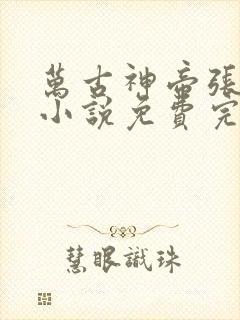 萬古神帝張
小說免費完
慧眼識珠